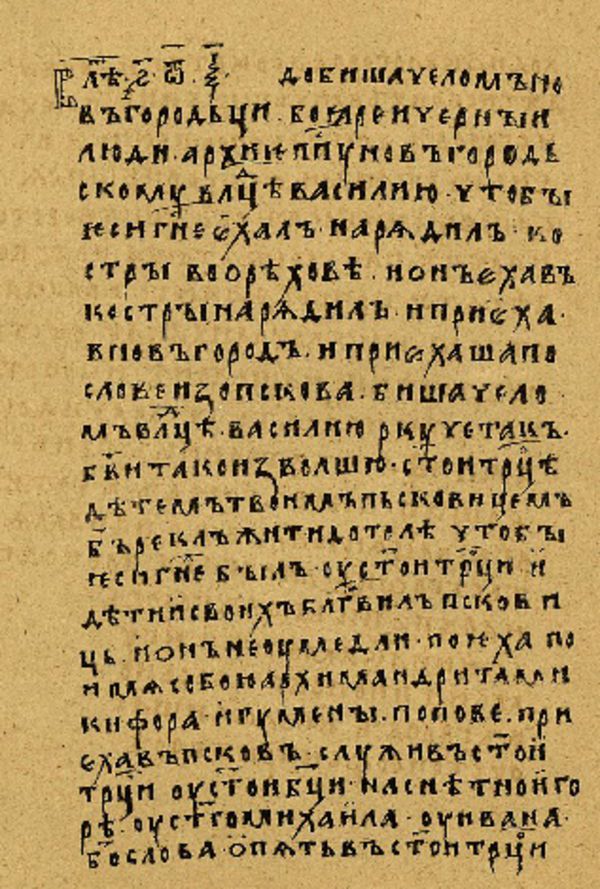 В лѣ҃т. ҂ѕ҃. ѿ҃. ѯ҃. добиша челомъ но
въгородьци. бояре и черныи
люди. архиеп҃пу новъгородь
скому вл҃дцѣ василию. чтобы
еси г҃не ѣхалъ нарѧдилъ ко
стры во орѣховѣ. и онъ ѣхавъ
костры нарѧдилъ. и приѣха.
в новъгородъ. и приѣхаша по
слове изо пскова. биша чело
мъ вл҃дцѣ. василию ркуче такъ.
б҃ви тако изволшю. ст҃ои тр҃цѣ
дѣтемъ твоимъ пьсковицемъ
б҃ъ реклъ жити дотолѣ чтобы
еси г҃не былъ оу ст҃ои тр҃ци и
дѣтии своихъ бл҃гвилъ псков и
ць. и онъ не оумедли. поѣха по
имѧ собою архимандрита ми
кифора. игумены. попове. при
ѣха въ псковъ. служивъ ст҃ои
тр҃ци оу ст҃ои б҃ци. на снѣтнои го
рѣ. оу ст҃го михаила. оу ивана.
б҃ослова опѧть въ ст҃ои тр҃ци